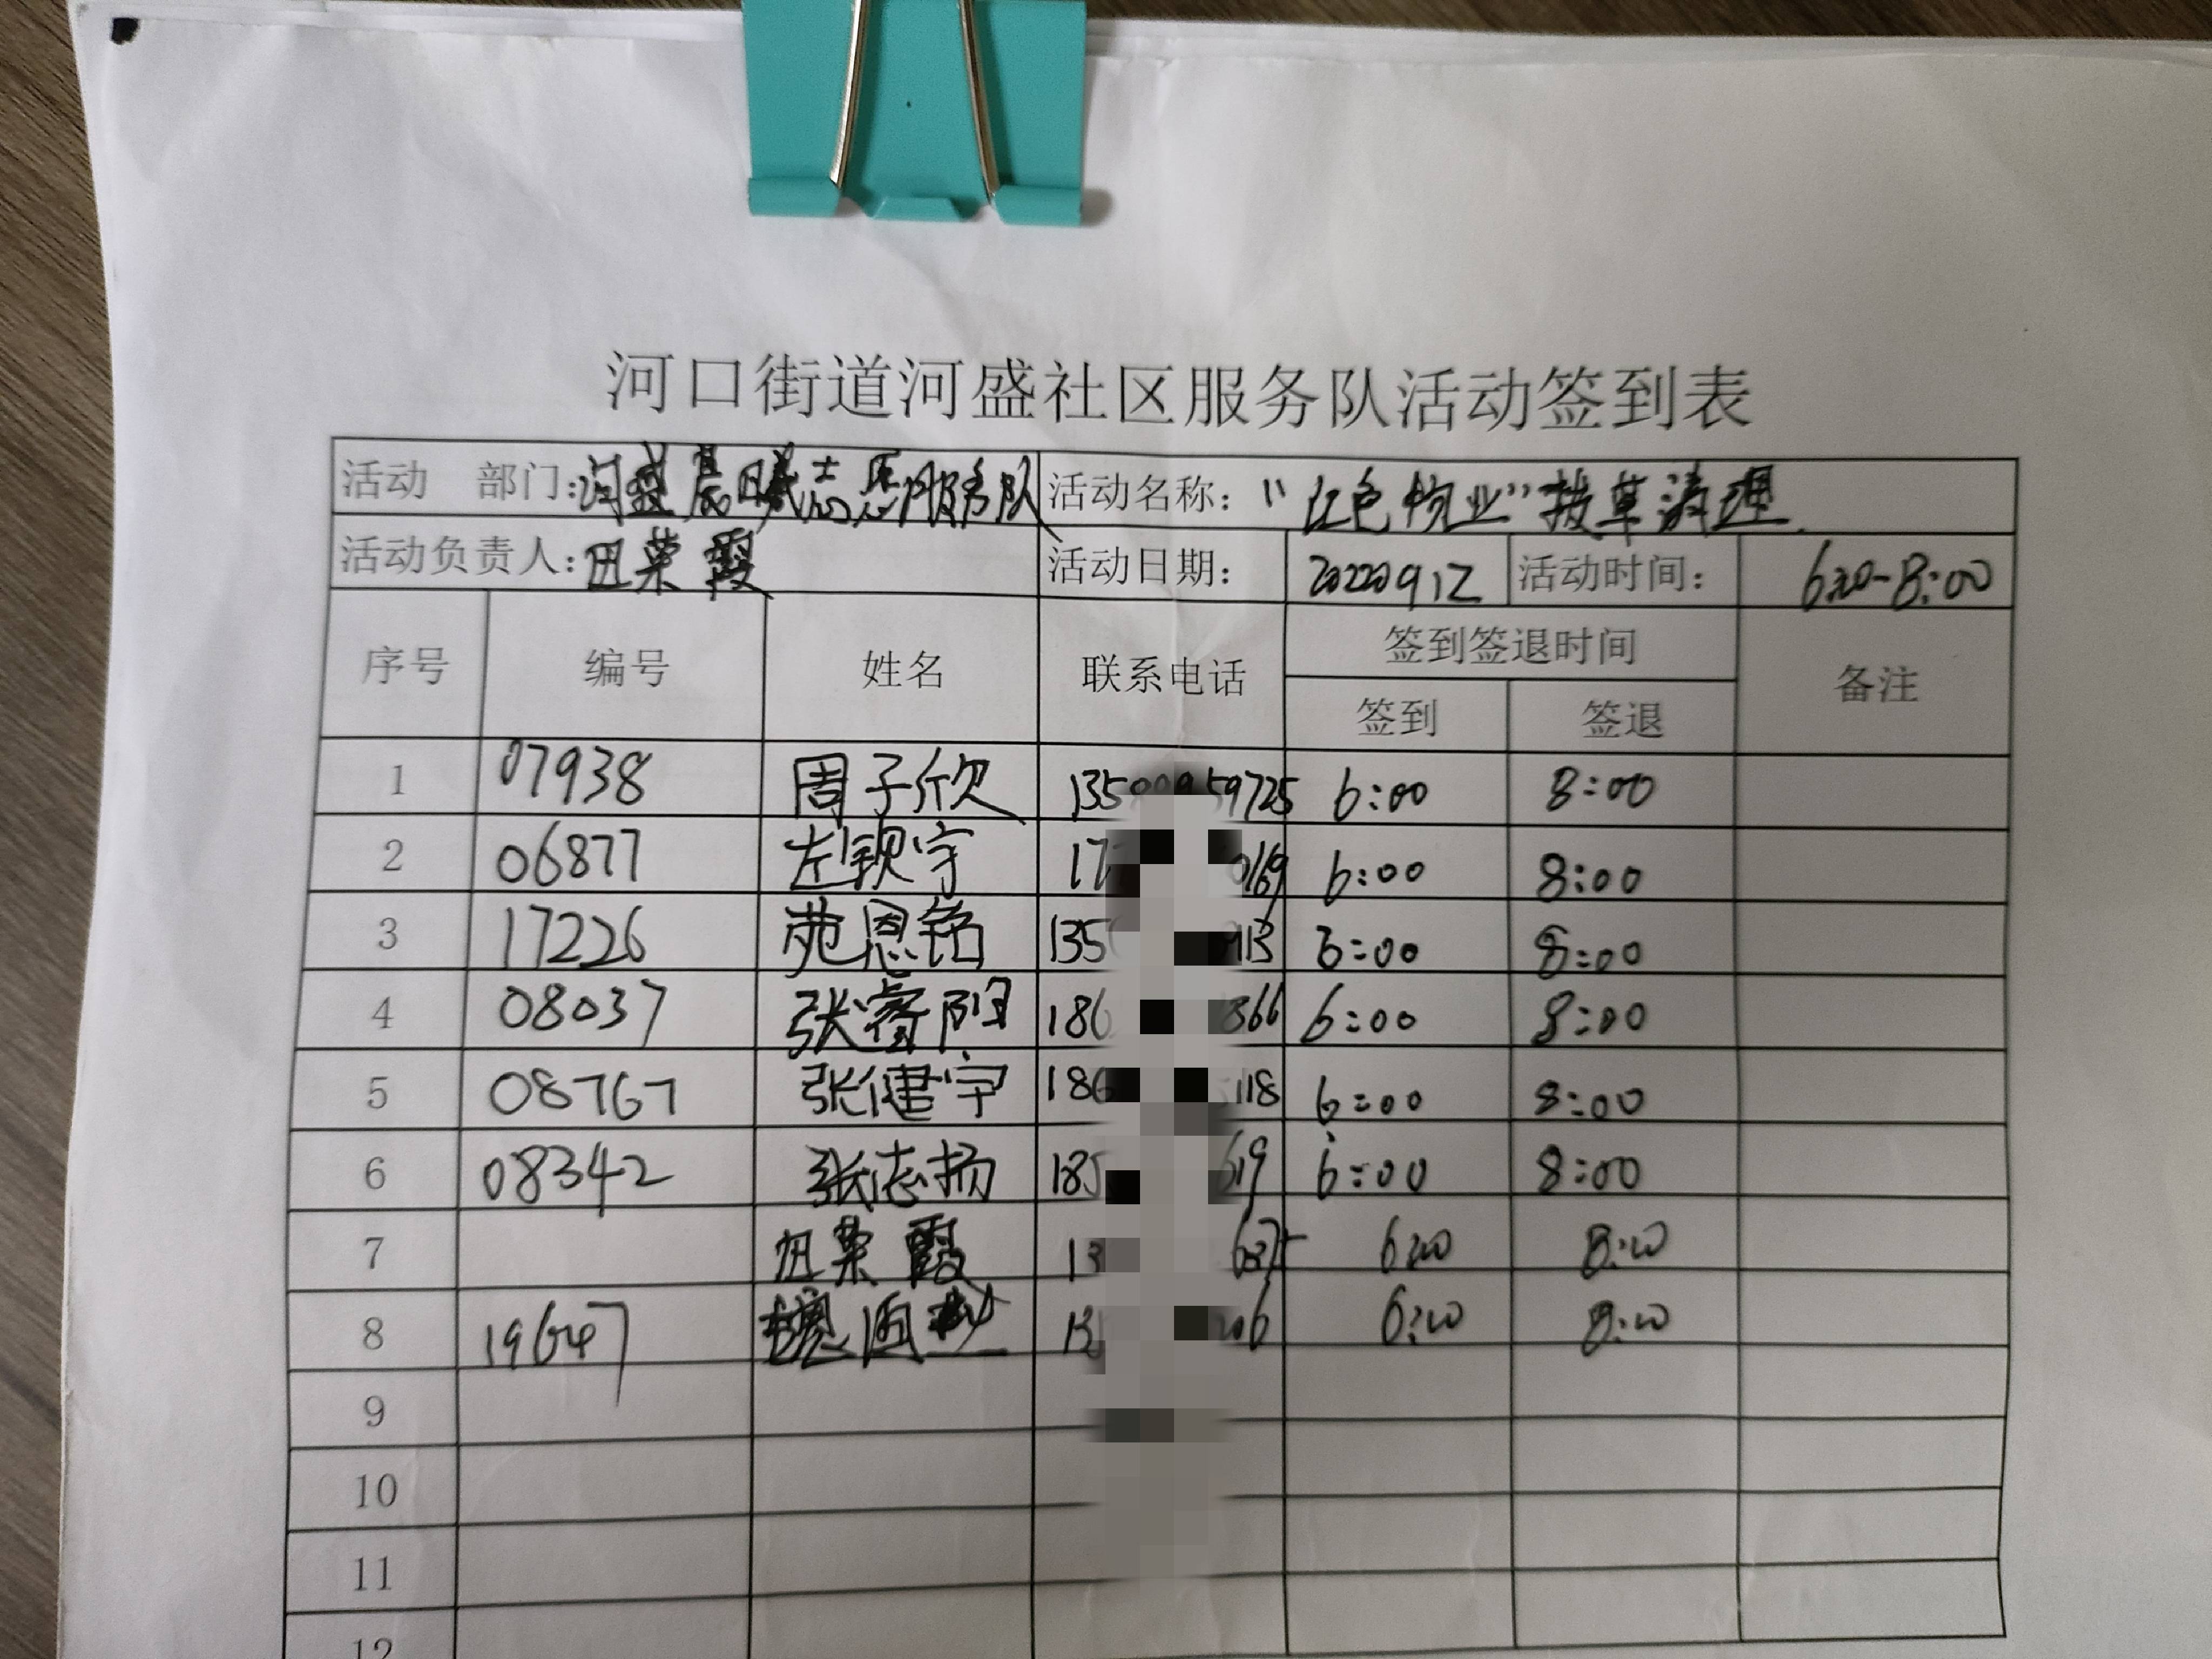 河口街道河盛社区服务队活动签到表
活动 部门:河盛晨曦志愿服务队 活动名称:“红色物业”拔草清理
活动负责人:田荣霞 活动日期: 20220912 活动时间: 6:00-8:00
序号 编号 姓名 联系电话 签到签退时间 备注
签到 签退
1 07938 周子欣 135 59725 6:00 8:00
2 06877 左钦宇 17 0169 6:00 8:00
3 17226 苑恩铭 135 913 6:00 8:00
4 08037 张睿阳 186 366 6:00 8:00
5 08767 张健宇 186 118 6:00 8:00
6 08342 张志扬 185 619 6:00 8:00
7 田荣霞 13 6:00 8:00
8 19647 6:00 8:00
9
10
11
12